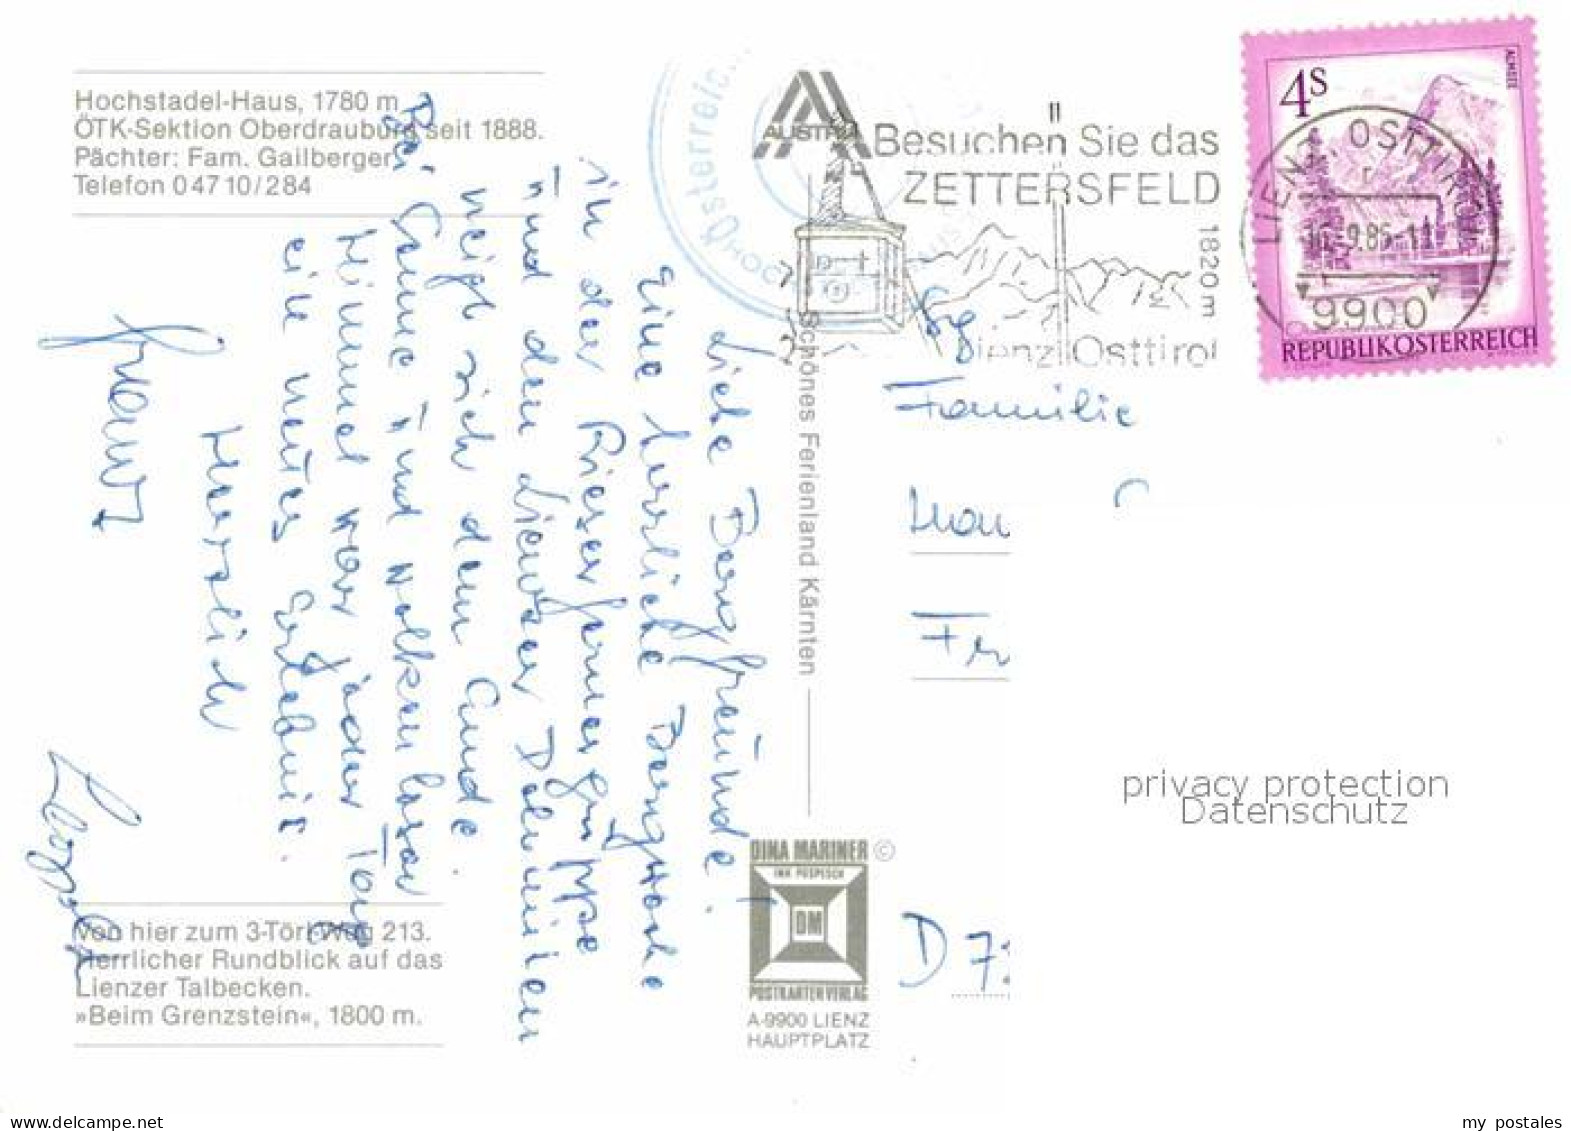 Hochstadel-Haus, 1780 m
ÖTK-Sektion Oberdrauburg seit 1888.
Pächter: Fam. Gailberger
Telefon 04710/284
Liebe Bergfreunde!
Eine herrliche Bergwoche
in der Rieserfernergruppe
und den Lienzer Dolomiten
neigt sich dem Ende.
Bei Sonne und wolkenlosen
Himmel war jeder Tag
ein neues Erlebnis.
Herzlich
Franz
Von hier zum 3-Törl-Weg 213.
Herrlicher Rundblick auf das
Lienzer Talbecken.
»Beim Grenzstein«, 1800 m.
Schönes Ferienland Kärnten
DINA MARINER ©
INH POSPESCH
DM
POSTKARTENVERLAG
A-9900 LIENZ
HAUPTPLATZ
Österreich
AUSTRIA
Besuchen Sie das
ZETTERSFELD
1820 m
Lienz Osttirol
4S
ALMSEE
LIENZ, OSTTIROL
9.86-11
9900
REPUBLIK ÖSTERREICH
Familie
D 7
privacy protection
Datenschutz
my postales